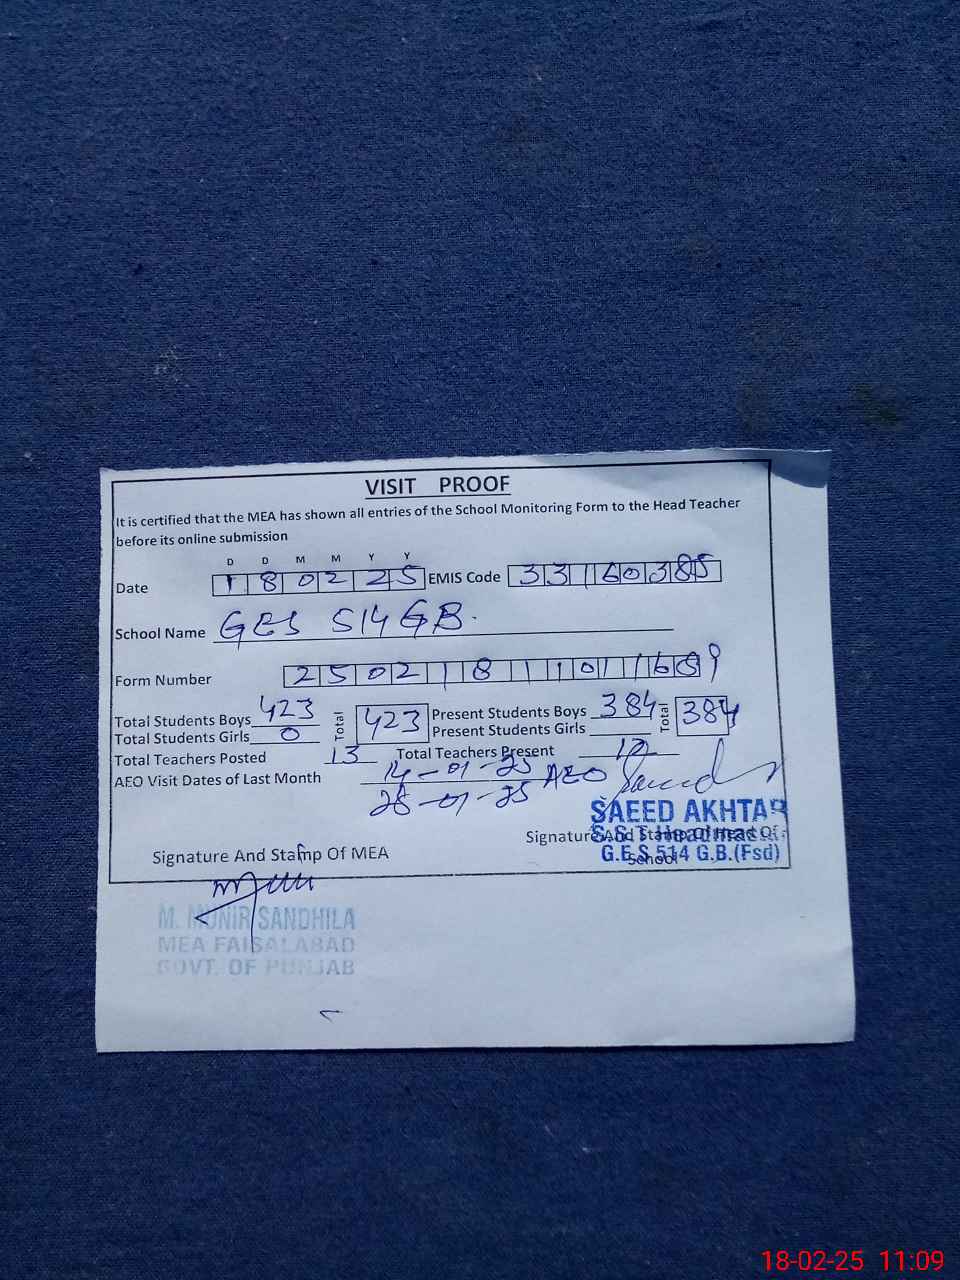 VISIT PROOF
It is certified that the MEA has shown all entries of the School Monitoring Form to the Head Teacher
before its online submission
D D M M Y Y
Date 180225 EMIS Code 33160385
School Name GES 514 GB.
Form Number
Total Students Boys 423 Total 423 Present Students Boys 384 Total 384
Total Students Girls 0 Present Students Girls
Total Teachers Posted 13 Total Teachers Present 12
AEO Visit Dates of Last Month 14-01-25 AEO
28-01-25
SAEED AKHTAR
Signature And Stamp Of Head Of
S.S.T Headmaster
School
G.E.S 514 G.B.(Fsd)
Signature And Stamp Of MEA
M. MUNIR SANDHILA
MEA FAISALABAD
GOVT. OF PUNJAB
18-02-25 11:09